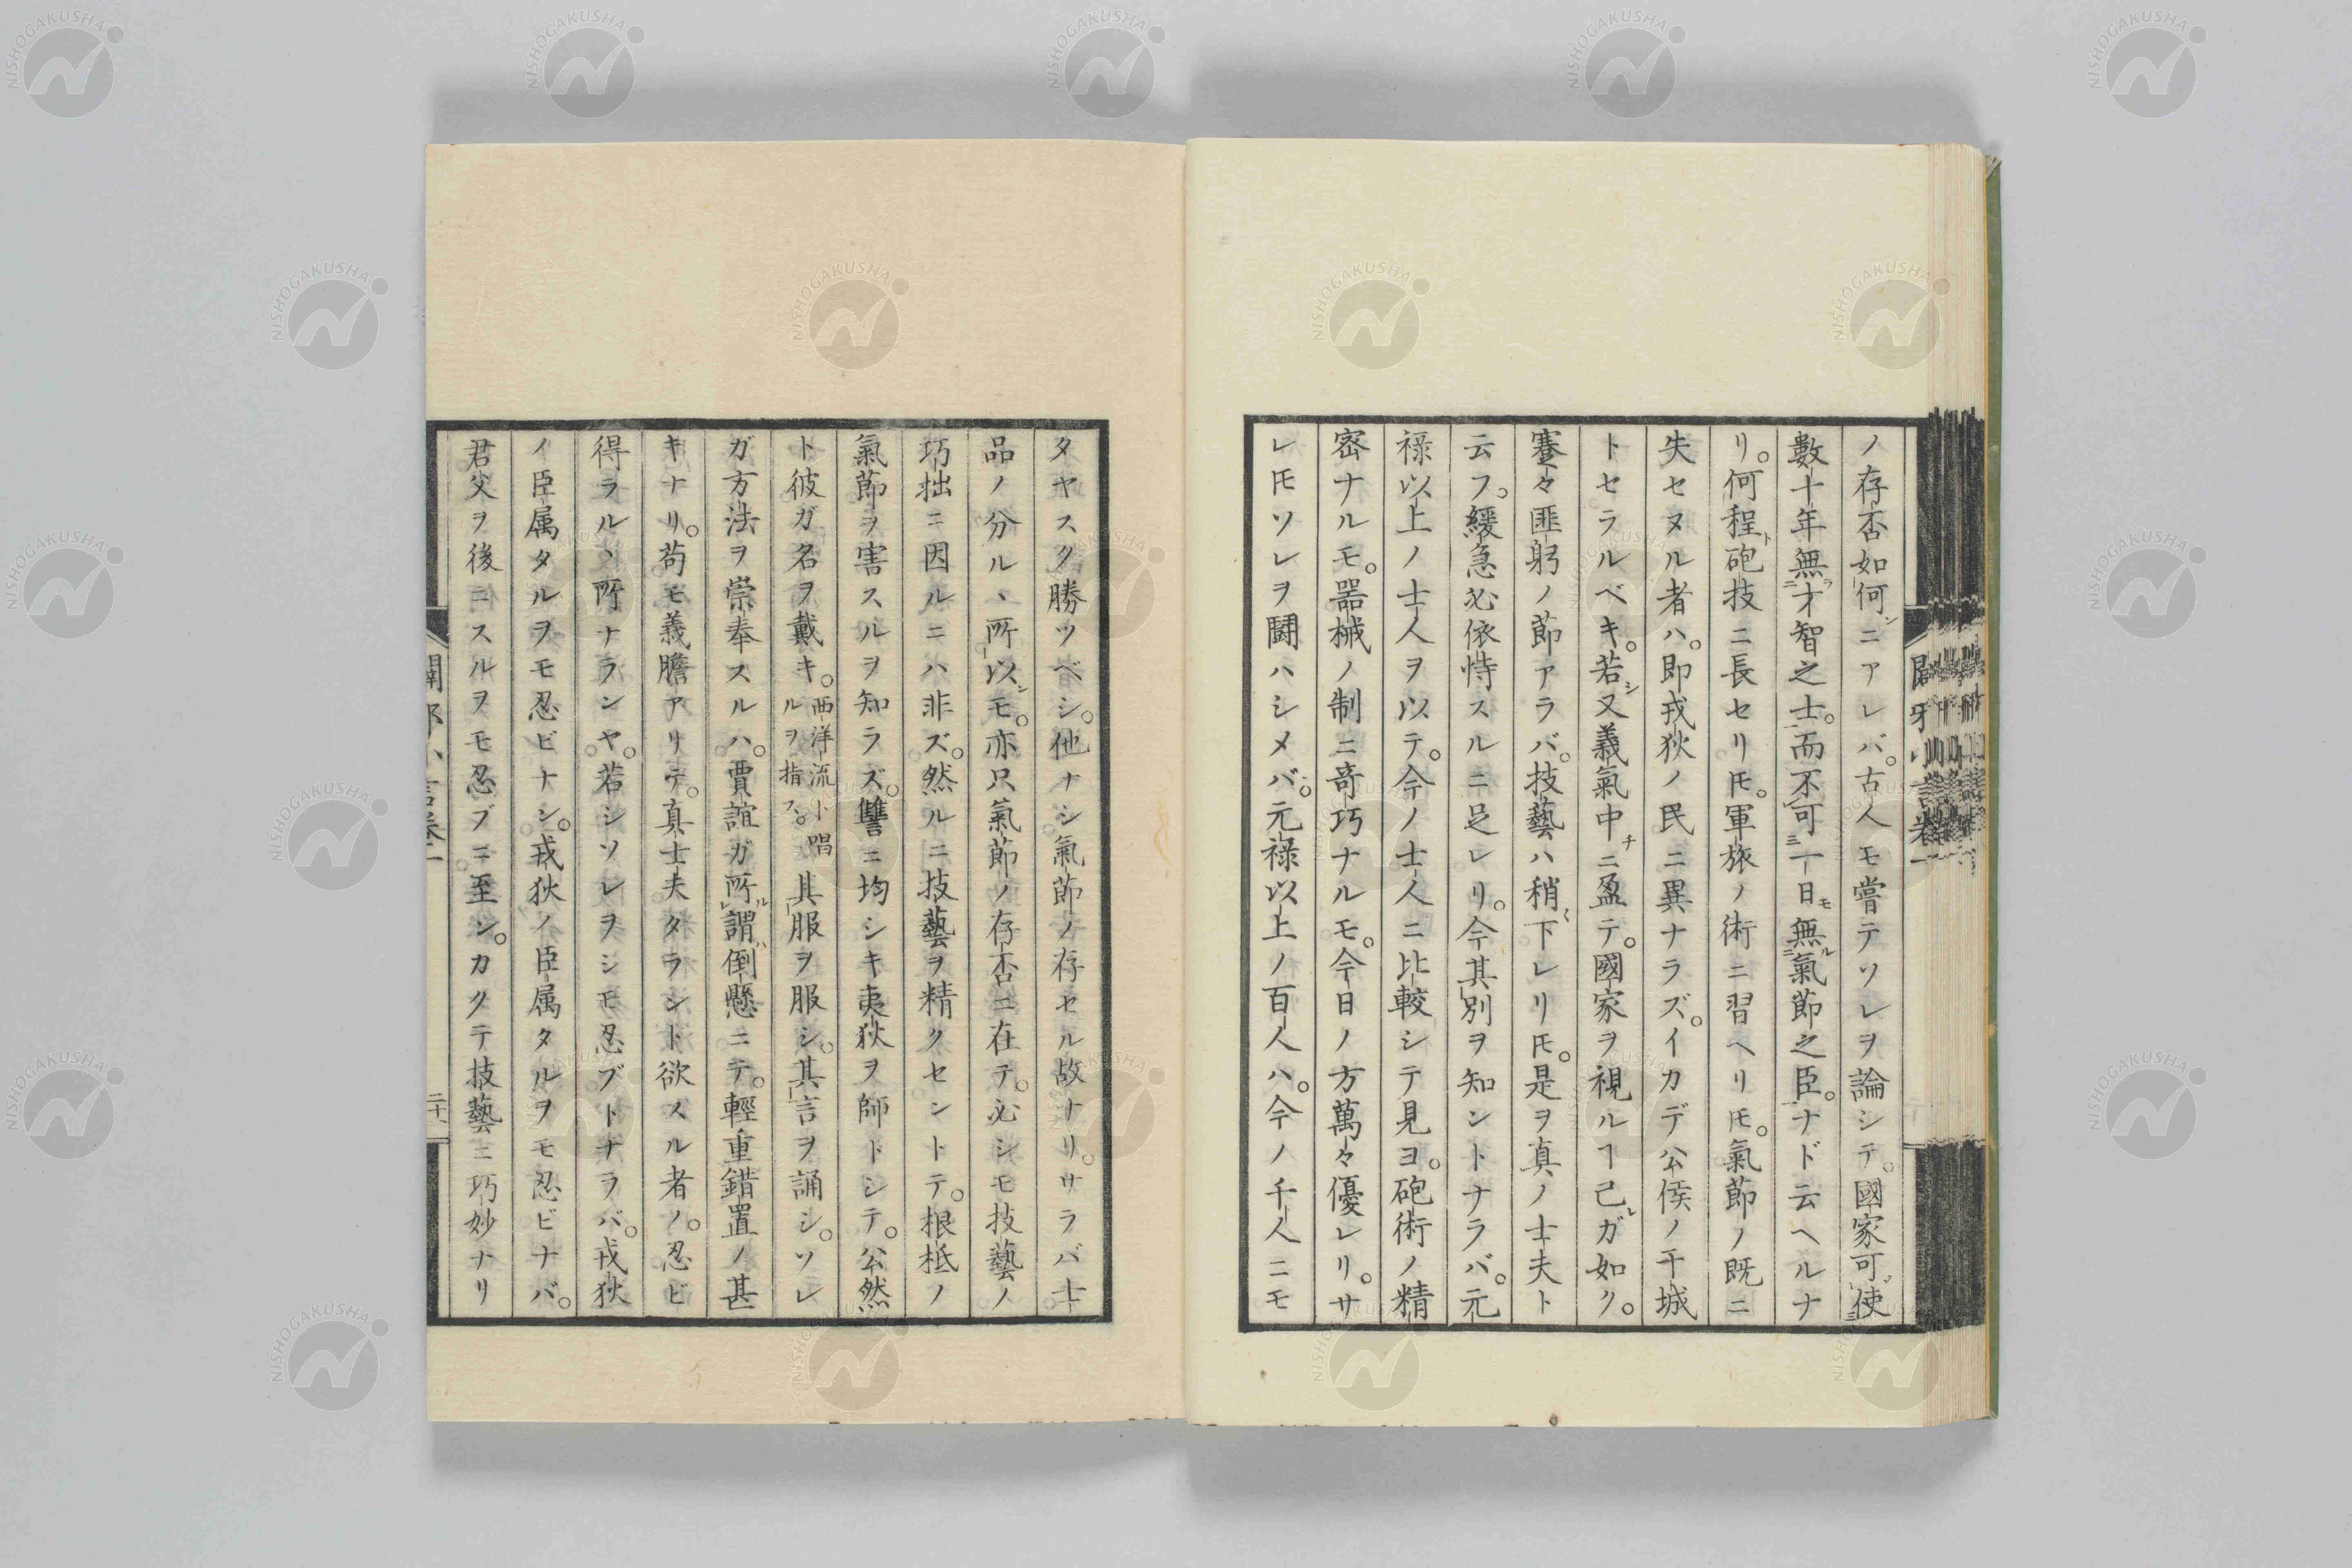 ノ存否如何ニアレバ。古人モ嘗テソレヲ論シテ。國家可使
數十年無才智之士。而不可一日無氣節之臣。ナド云ヘルナ
リ。何程砲技ニ長セリ𪜈。軍旅ノ術ニ習ヘリ𪜈。氣節ノ既ニ
失セヌル者ハ。即戎狄ノ民ニ異ナラズ。イカデ公侯ノ干城
トセラルベキ。若又義氣中ニ盈テ。國家ヲ視ルヿ己ガ如ク。
蹇々匪躬ノ節アラバ。技藝ハ稍下レリ𪜈。是ヲ真ノ士夫ト
云フ。緩急必依恃スルニ足レリ。今其別ヲ知ントナラバ。元
祿以上ノ士人ヲ以テ。今ノ士人ニ比較シテ見ヨ。砲術ノ精
密ナルモ。器械ノ制ニ奇巧ナルモ。今日ノ方萬々優レリ。サ
レ𪜈ソレヲ鬪ハシメバ。元祿以上ノ百人ハ。今ノ千人ニモ
タヤスク勝ツベシ。他ナシ氣節ノ存セル故ナリ。サラバ士
品ノ分ルヽ所以モ。亦只氣節ノ存否ニ在テ。必シモ技藝ノ
巧拙ニ因ルニハ非ズ。然ルニ技藝ヲ精クセントテ。根柢ノ
氣節ヲ害スルヲ知ラズ。讐ニ均シキ夷狄ヲ師トシテ。公然
ト彼ガ名ヲ戴キ。西洋流ト唱ルヲ指フ。其服ヲ服シ。其言ヲ誦シ。ソレ
ガ方法ヲ崇奉スルハ。賈誼ガ所謂倒懸ニテ。輕重錯置ノ甚
キナリ。苟モ義膽アリテ。真士夫タラント欲スル者ノ。忍ビ
得ラルヽ所ナランヤ。若シソレヲシモ忍ブトナラバ。戎狄
ノ臣属タルヲモ忍ビナシ。戎狄ノ臣属タルヲモ忍ビナバ。
君父ヲ後ニスルヲモ忍ブニ至ン。カクテ技藝ニ巧妙ナリ
NISHOGAKUSHA